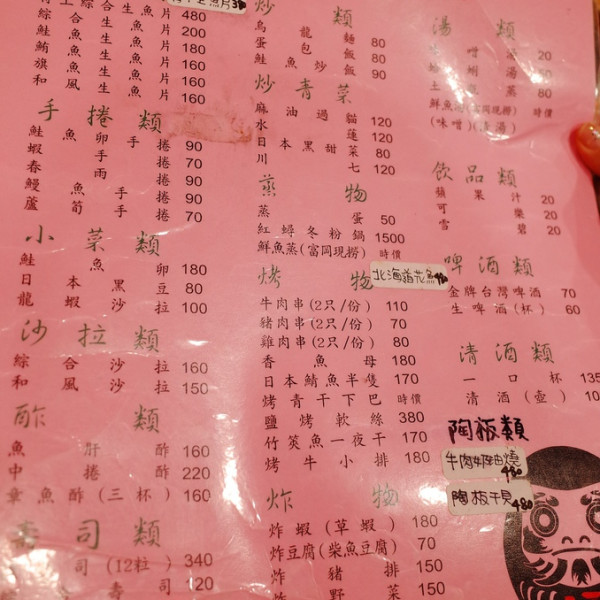 合生魚片 480
鮭生魚片 200
鮪生魚片 180
旗魚生魚片 160
和風生魚片 160
手捲類
鮭魚卵手捲 90
蝦手捲 70
春雨手捲 90
鰻魚手捲 90
蘆筍手捲 70
小菜類
鮭魚卵 180
日本黑豆 80
龍蝦沙拉 100
沙拉類
綜合沙拉 160
和風沙拉 150
酢類
魚肝酢 160
中捲酢 220
章魚酢(三杯) 160
壽司類
司(12粒) 340
壽司 120
炒類
烏龍麵 80
蛋包飯 80
鮭魚炒飯 90
炒青菜
麻油過貓 120
水蓮 120
日本黑甜菜 80
川七 120
蒸物
蒸蛋 50
紅蟳冬粉鍋 1500
鮮魚蒸(富岡現撈) 時價
烤物
北海道花魚
牛肉串(2只/份) 110
豬肉串(2只/份) 70
雞肉串(2只/份) 80
香魚母 180
日本鯖魚半隻 170
烤青干下巴 時價
鹽烤軟絲 380
竹筴魚一夜干 170
烤牛小排 180
炸物
炸蝦(草蝦) 180
炸豆腐(柴魚豆腐) 70
炸豬排 150
炸野菜 150
湯類
20
湯 20
土 蒸 80
鮮魚湯(富岡現撈) 時價
(味噌)(清酒)
飲品類
蘋果汁 20
可樂 20
雪碧 20
啤酒類
金牌台灣啤酒 70
生啤酒(杯) 60
清酒類
一口杯 135
清酒(壺) 10
陶板類
牛肉奶油燒 480
陶板干貝 480